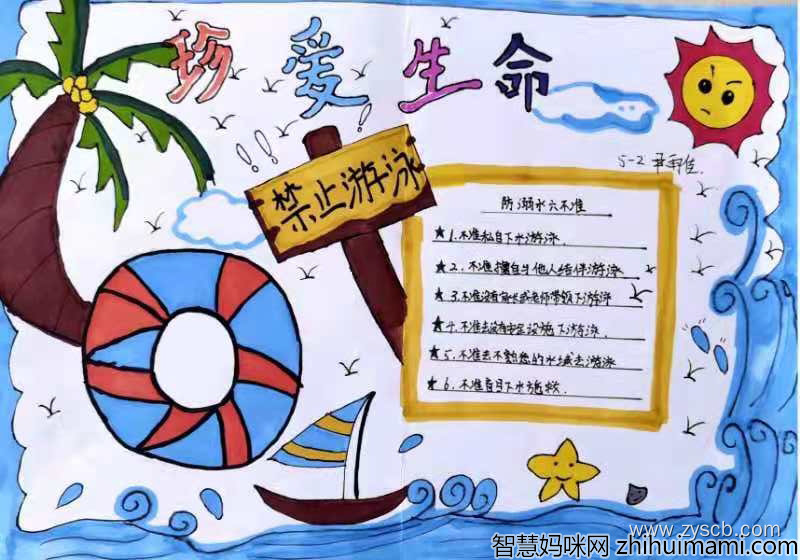 珍爱生命
!! !
禁止游泳
5-2
防溺水六不准
★1.不准私自下水游泳.
★2.不准擅自与他人结伴游泳
★3.不准没有家长或老师带领下游泳
★4.不准去没有安全设施下游泳
★5.不准去不熟悉的水域去游泳
★6.不准盲目下水施救.
www.zyscb.com
智慧妈咪网 zhihuimami.com